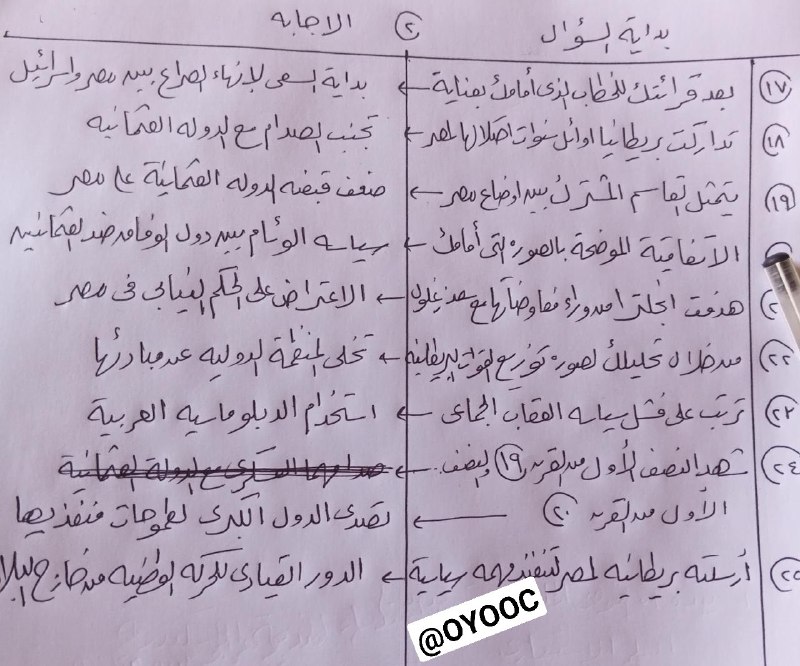 بداية السؤال ٢ الاجابه
١٧ بعد قرائتك للخطاب الذى أمامك بعناية ← بداية السعى لإنهاء الصراع بين مصر واسرائيل
١٨ تداركت بريطانيا اوائل سنوات احتلالها لمصر ← تجنب الصدام مع الدوله العثمانيه
١٩ يتمثل القاسم المشترك بين اوضاع مصر ← ضعف قبضه الدوله العثمانية على مصر
الاتفاقية الموضحة بالصوره التى أمامك ← سياسه الوئام بين دول الوفاق ضد العثمانيين
هدفت انجلترا من وراء مفاوضاتها مع سعد زغلول ← الاعتراض على الحكم النيابى فى مصر
٢٢ من خلال تحليلك لصوره توزيع القوات البريطانيه ← تخلى المنظمة الدوليه عن مبادئها
٢٣ ترتب على فشل سياسه العقاب الجماعى ← استخدام الدبلوماسيه العربية
٢٤ شهد النصف الأول من القرن ١٩ والنصف ← صدامهما العسكرى مع الدولة العثمانية
الأول من القرن ٢٠ ← تصدى الدول الكبرى لطموحات منفذيها
٢٥ أرسلته بريطانيه لمصر لتنفيذ مهمه سياسية ← الدور القيادى للحركه الوطنيه من خارج البلا
@OYOOC